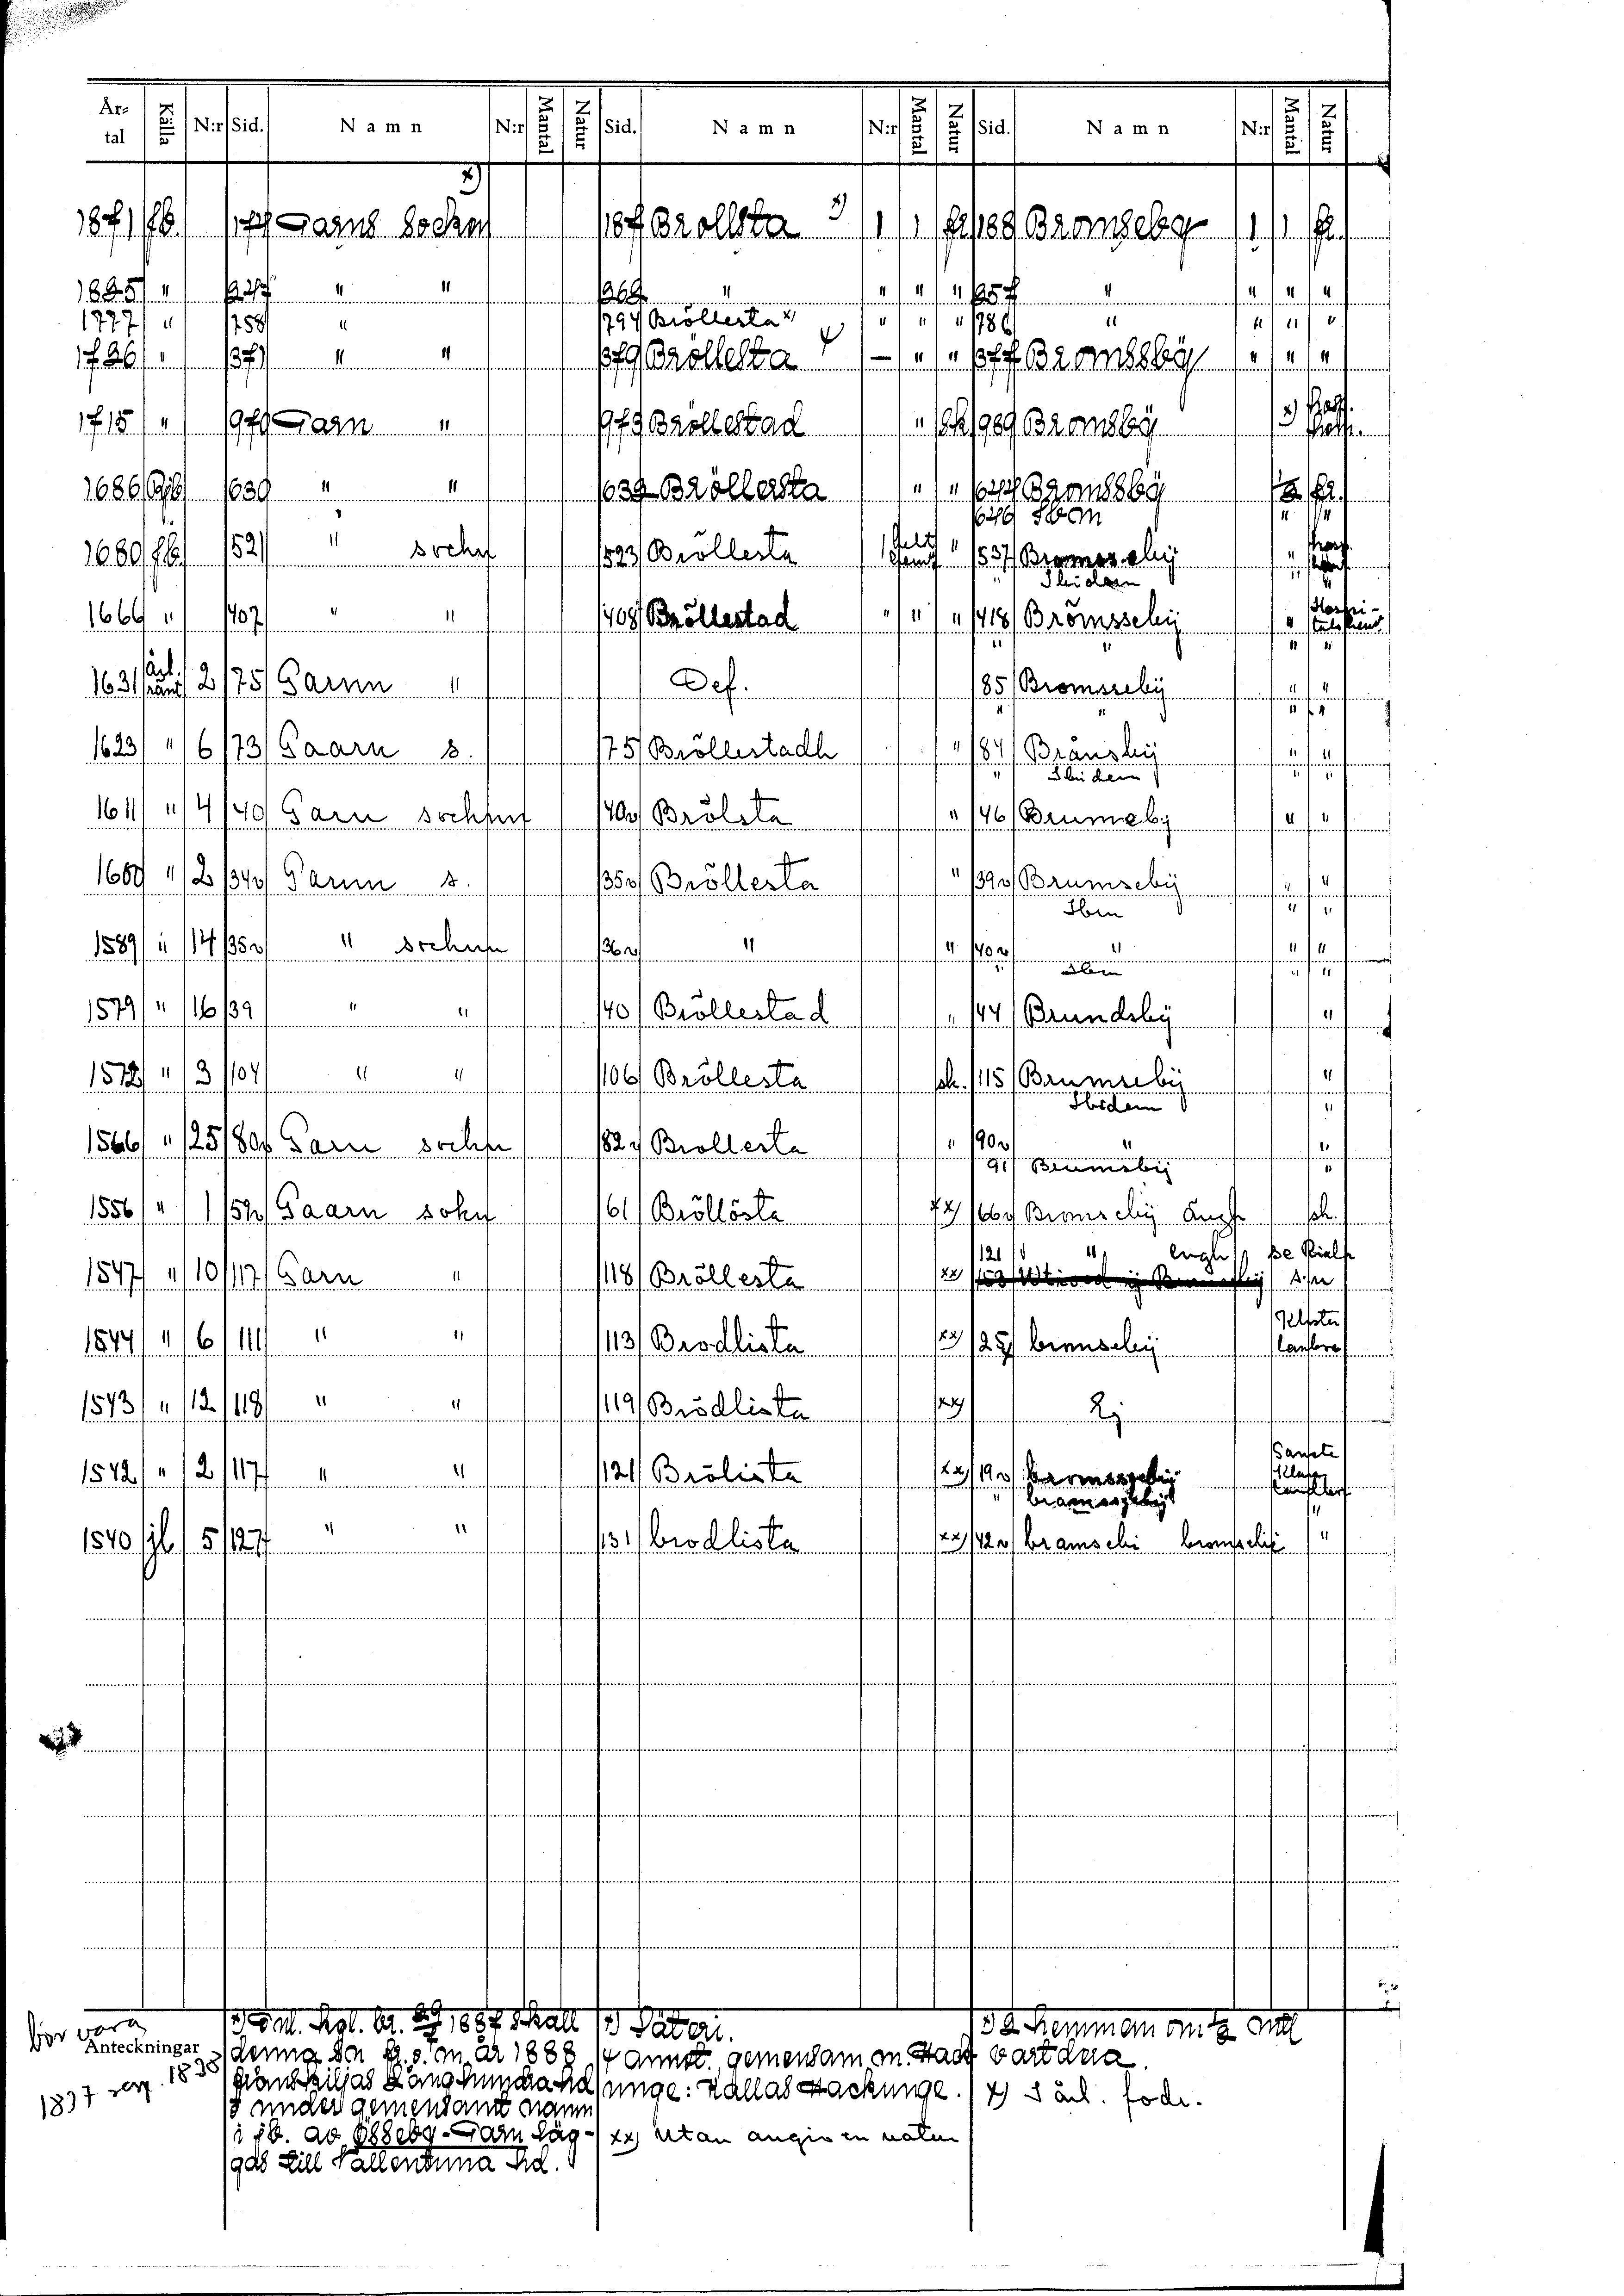 År-tal Källa N:r Sid. Namn N:r Mantal Natur Sid. Namn N:r Mantal Natur Sid. Namn N:r Mantal Natur
x)
1871 Jb. 174 Garns Socken 187 Brollsta x) 1 1 fr 188 Bromseby 1 1 fr.
1825 " 247 " " 269 " " " " 257 " " " "
1777 " 758 " 794 Bröllesta x) " " " 786 " " " "
1726 " 371 " " 379 Bröllesta — " " 377 Bromssbÿ " " "
1715 " 970 Garn " 973 Bröllestad " Sk 989 Bromsbÿ x)
1686 630 " " 632 Bröllersta " " 644 Bromssbÿ ½ fr.
646 Ibm " "
1680 Jb. 521 " sochn 523 Bröllesta 1 " 537 Bromsseby "
Ibidem " "
1666 " 407 " " 408 Bröllestad " " " 418 Brömssebÿ " Hospi-
" " " "
1631 Årl. ränt 2 75 Garnn " Def. 85 Bromssebÿ " "
" " " "
1623 " 6 73 Gaarn s. 75 Bröllestadh " 84 Brånsbÿ " "
" Ibidem " "
1611 " 4 40 Garn sochnn 40v Brölsta " 46 Brumeby " "
1600 " 2 34v Garnn s. 35v Bröllesta " 39v Brumsebÿ " "
Ibm " "
1589 " 14 35v " sochnn 36v " " 40v " " "
" Ibm " "
1579 " 16 39 " " 40 Bröllestad " 44 Brundsbÿ "
1572 " 3 104 " " 106 Bröllesta sk. 115 Brumsebÿ "
Ibidem "
1566 " 25 80v Garn sochn 82v Brollesta " 90v " "
91 Brumsbÿ "
1556 " 1 59v Gaarn sokn 61 Bröllösta xx) 66v Bromsebÿ ängh sk.
121 " engh
1547 " 10 117 Garn " 118 Bröllesta xx)
1544 " 6 111 " " 113 Brodlista xx) 25 bromsebÿ Kloster
1543 " 12 118 " " 119 Brödlista xx) Ej
1542 " 2 117 " " 121 Brölista xx) 19v bromssebÿ Sancte
" bramssebÿ "
1540 jb 5 127 " " 131 brodlista xx) 42v bramsebi bromsebÿ "
bör vara
Anteckningar
1837 resp. 1838
x) Enl. Kgl. br. 1887 skall
denna Sn fr. o. m. år 1888
frånskiljas Långhundra hd
o under gemensamt namn
i jb. av Össeby-Garn läg-
gas till Vallentuna hd.
x) Säteri.
annot. gemensam m. Hack
unge: Kallas Hackunge.
xx) Utan angiven natur
x) 2 Hemman om ½ mtl
vartdera.
x) I ärl. fodr.